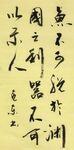 魚不可脱於淵
國之利器不可
以示人